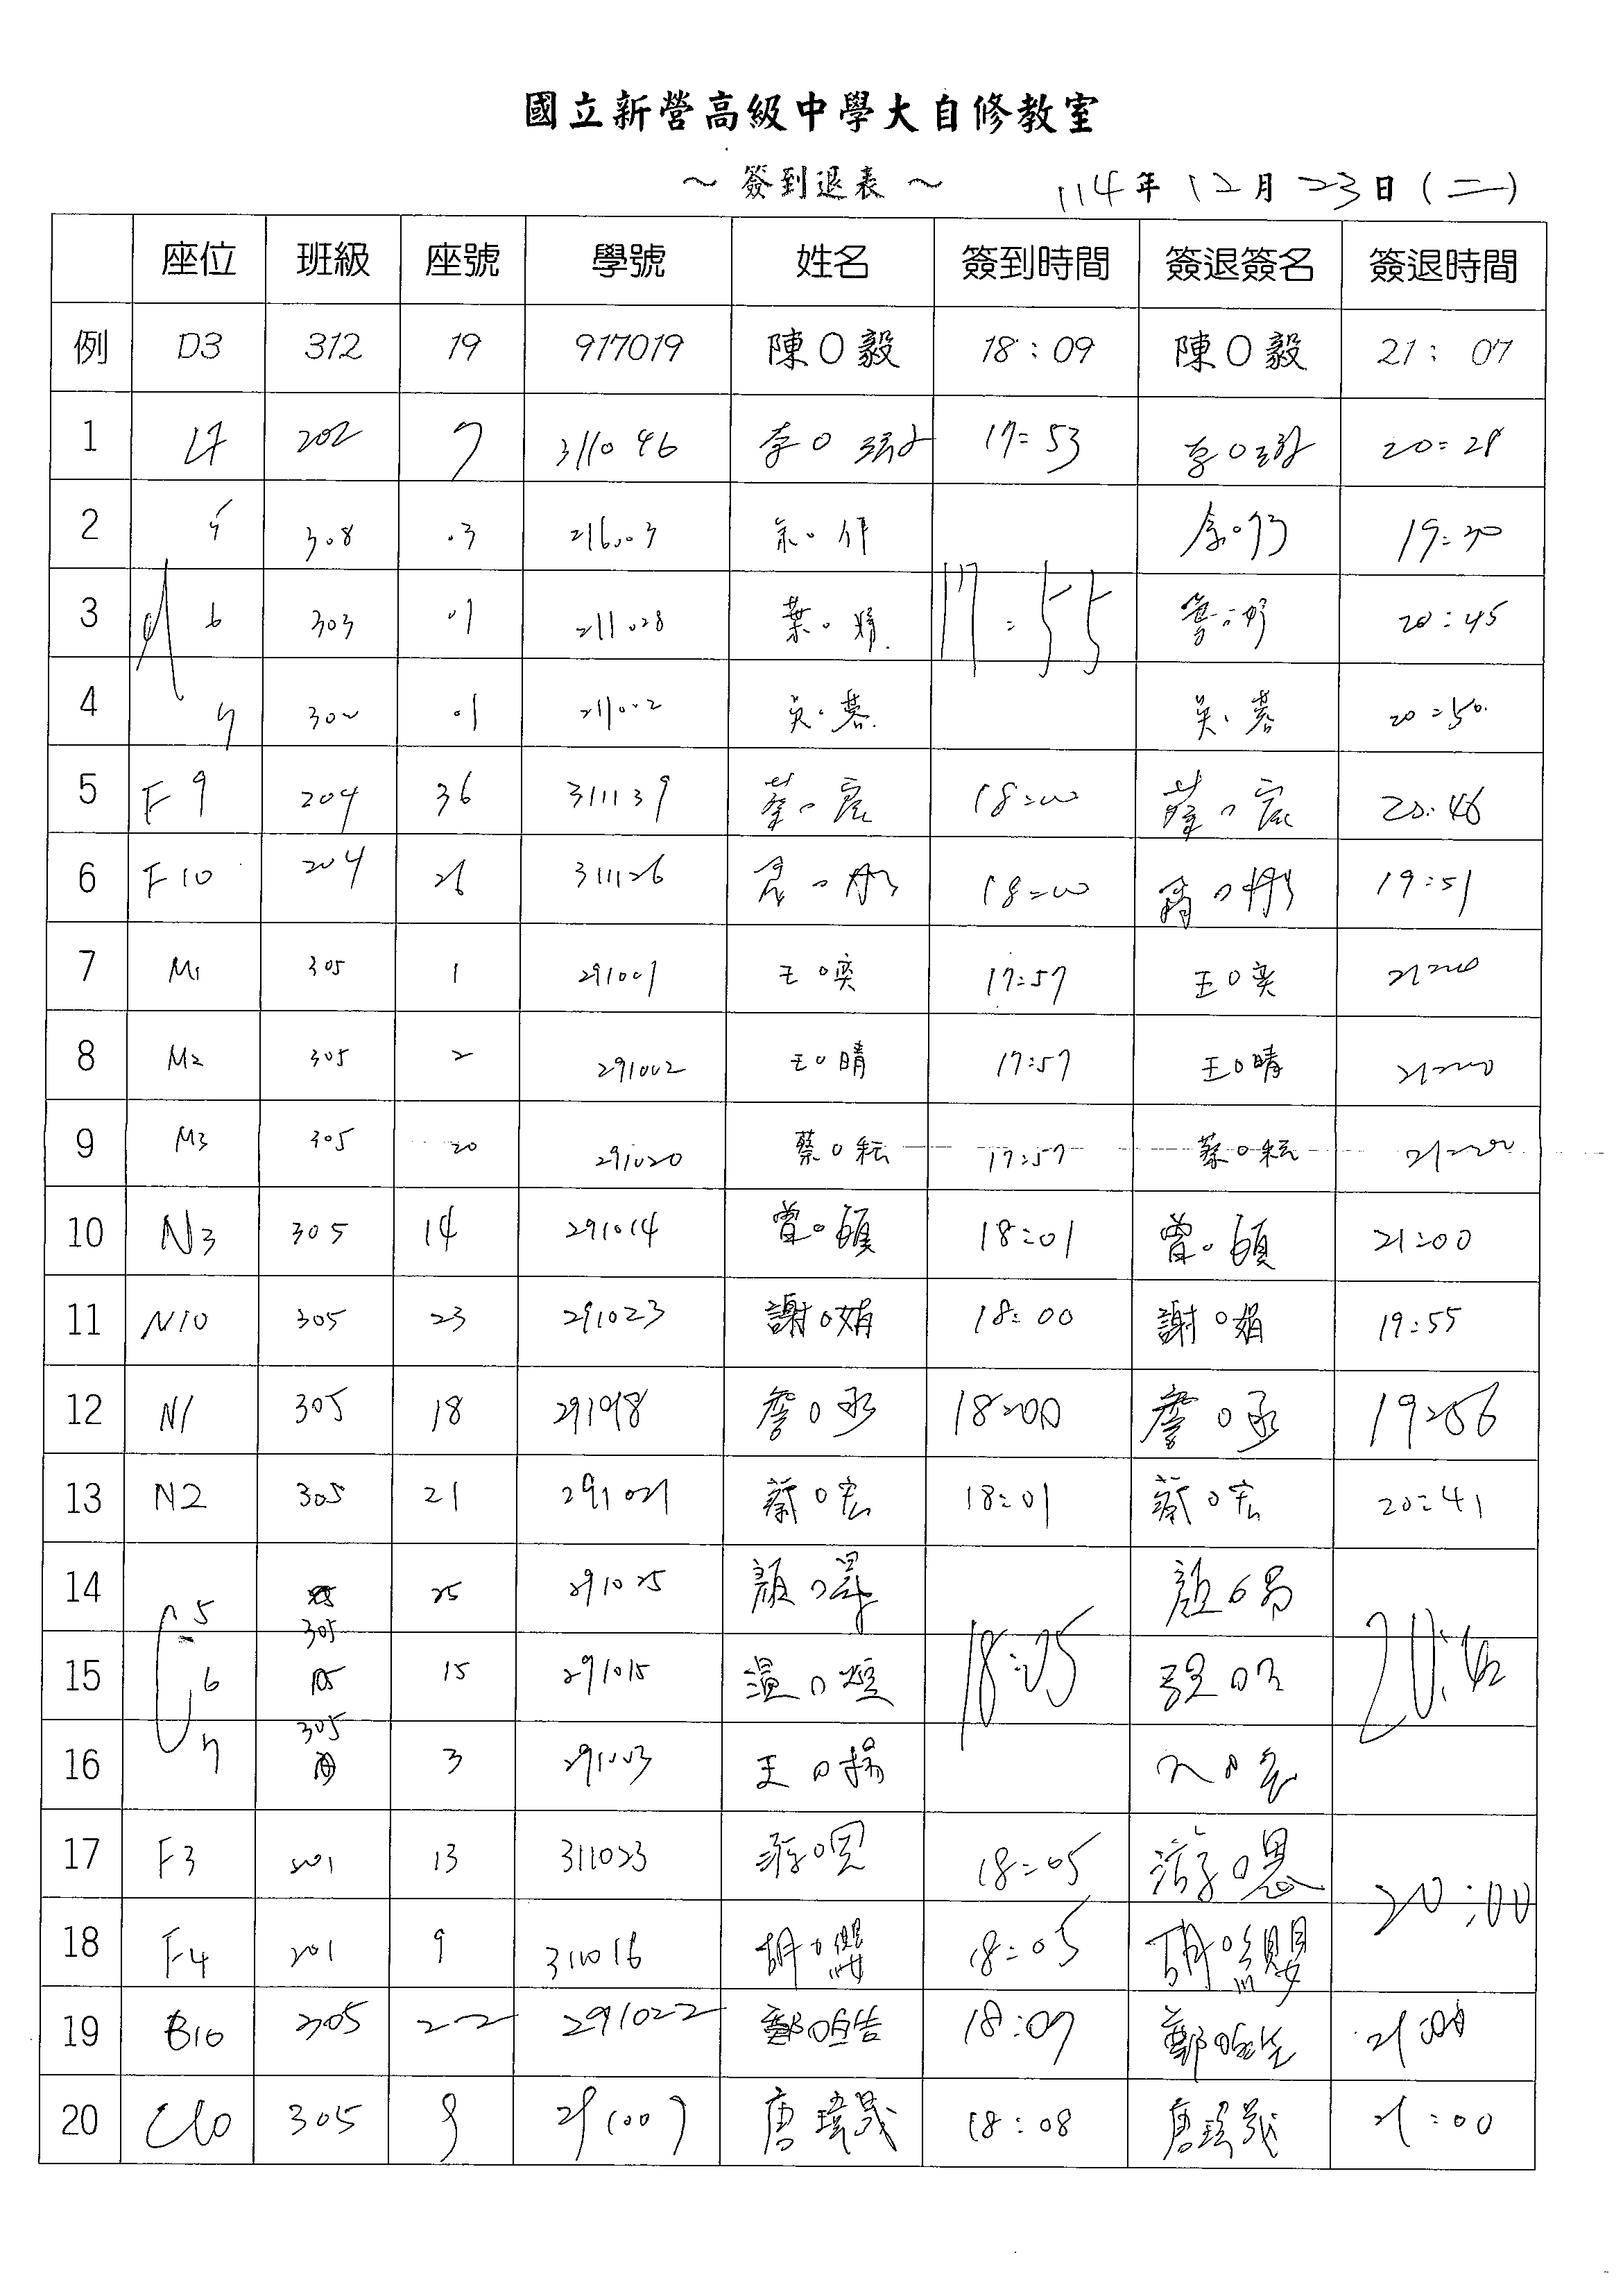 國立新營高級中學大自修教室
～ 簽到退表 ～ 114年12月23日(二)
座位 班級 座號 學號 姓名 簽到時間 簽退簽名 簽退時間
例 D3 312 19 917019 陳O毅 18:09 陳O毅 21:07
1 202 7 311046 李O 17:53 李O 20:28
2 5 308 03 216003 19:30
3 6 303 01 211028 葉O 17:55 20:45
4 7 302 01 211002 吳O蓉 吳O蓉 20:50
5 F9 204 36 311139 蔡O宸 18:00 蔡O宸 20:46
6 F10 204 26 311126 18:00 19:51
7 M1 305 1 291001 王O奕 17:57 王O奕 21:00
8 M2 305 2 291002 王O晴 17:57 王O晴 21:00
9 M3 305 20 291020 蔡O耘 17:57 蔡O耘 21:00
10 N3 305 14 291014 曾O碩 18:01 曾O碩 21:00
11 N10 305 23 291023 謝O娟 18:00 謝O娟 19:55
12 N1 305 18 291018 詹O承 18:00 詹O承 19:56
13 N2 305 21 291021 蔡O宏 18:01 蔡O宏 20:41
14 C5 305 25 291025 顏O 顏O
15 6 305 15 291015 溫O 18:05 20:42
16 7 305 3 291003 王O揚
17 F3 201 13 311023 游O恩 18:05 游O恩 20:00
18 F4 201 9 311016 胡O 18:05 胡O
19 B10 305 22 291022 鄭O 18:07 鄭O 21:00
20 C10 305 9 291009 唐瑋晟 18:08 唐瑋晟 21:00